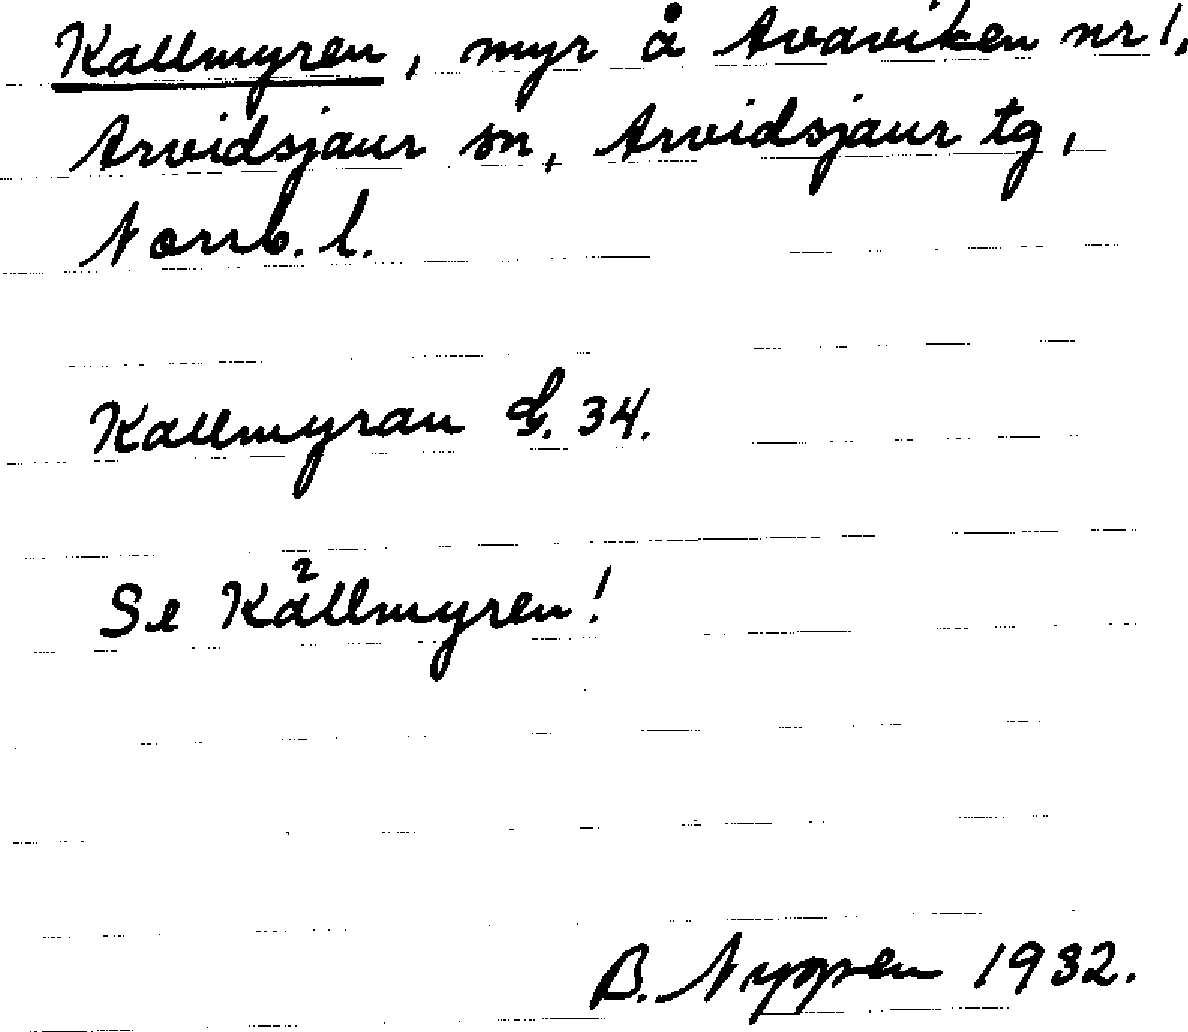 Kallmyren, myr å Avaviken nr 1,
Arvidsjaur sn, Arvidsjaur tg,
Norrb. l.
Kallmyran E. 34.
Se Källmyren!
B. Nygren 1932.